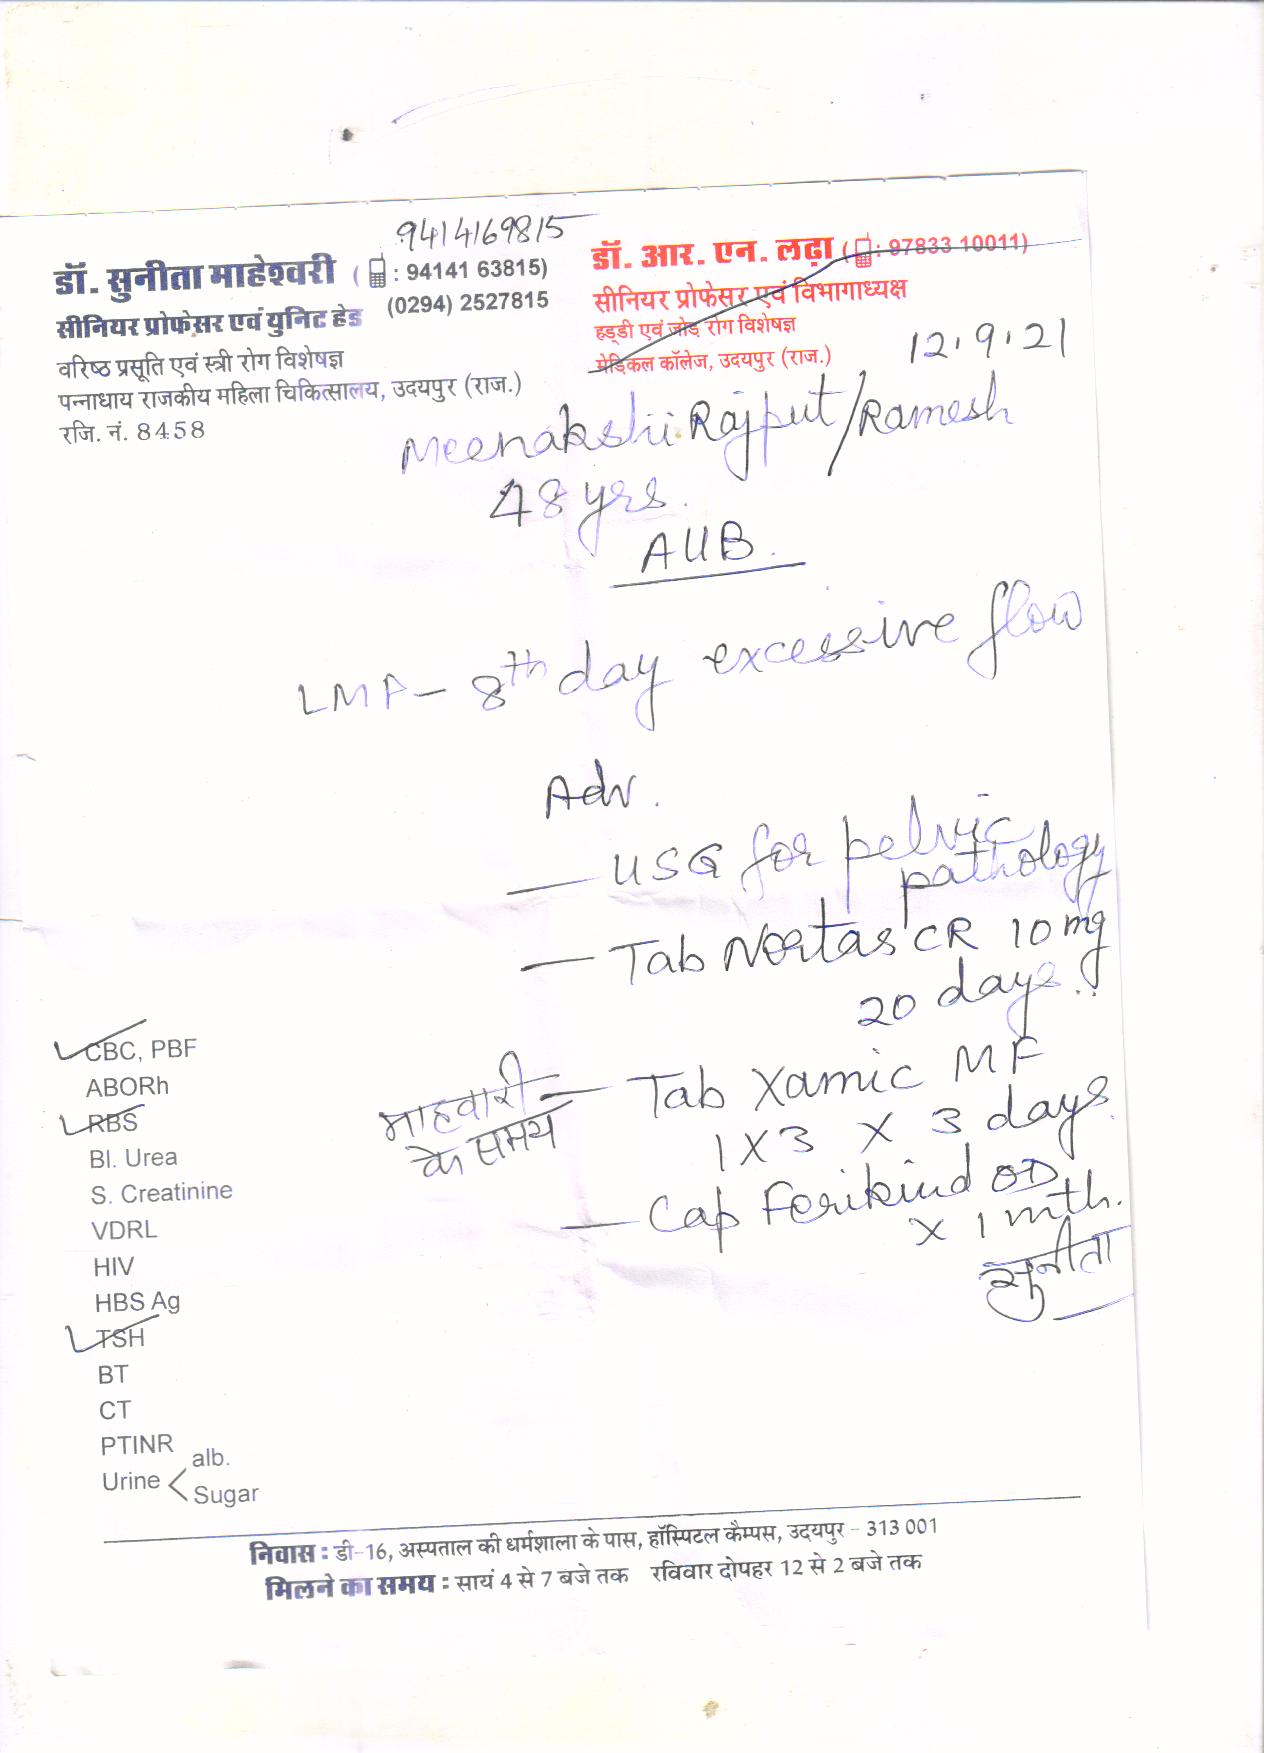 9414169815
डॉ. सुनीता माहेश्वरी ( : 94141 63815)
(0294) 2527815
सीनियर प्रोफेसर एवं युनिट हेड
वरिष्ठ प्रसूति एवं स्त्री रोग विशेषज्ञ
पन्नाधाय राजकीय महिला चिकित्सालय, उदयपुर (राज.)
रजि. नं. 8458
डॉ. आर. एन. लढ़ा ( : 97833 10011)
सीनियर प्रोफेसर एवं विभागाध्यक्ष
हड्डी एवं जोड़ रोग विशेषज्ञ
मेडिकल कॉलेज, उदयपुर (राज.)
12.9.21
Meenakshi Rajput/Ramesh
48 yrs.
AUB.
LMP - 8th day excessive flow
Adv.
— USG for pelvic
pathology
— Tab Nortas CR 10 mg
20 days.
माहवारी
के समय
— Tab Xamic MF
1 X 3 X 3 days
— Cap Ferikind OD
X 1 mth.
सुनीता
CBC, PBF
ABORh
RBS
Bl. Urea
S. Creatinine
VDRL
HIV
HBS Ag
TSH
BT
CT
PTINR
Urine < alb.
Sugar
निवास : डी-16, अस्पताल की धर्मशाला के पास, हॉस्पिटल कैम्पस, उदयपुर - 313 001
मिलने का समय : सायं 4 से 7 बजे तक रविवार दोपहर 12 से 2 बजे तक